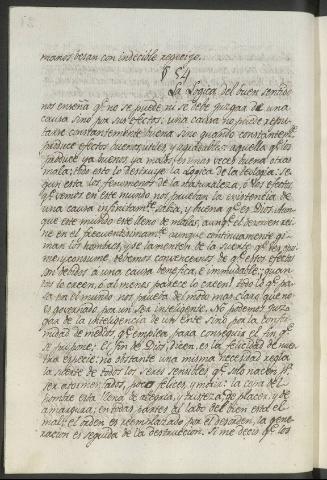 manos besan con indecible regocijo.
§ 54
La Logica del buen sentido
nos enseña qe. no se puede ni se debe juzgar de una
causa sino por sus efectos: una causa no puede reputarse
constantemente buena sino quando constantemte.
produce efectos buenos, utiles, y agradables: aquella qe. los
produce ya buenos ya malos, es unas veces buena otras
mala; pero esto lo destruye la Logica de la teologia: se-
gun esta los fenomenos de la naturaleza, ó los efectos
qe. vemos en este mundo nos prueban la existencia de
una causa infinitamte. sabia, y buena qe. es Dios. Aun-
que este mundo esté lleno de males, aunqe. el desorden rei-
ne en el frecuentisimamte. aunque continuamente gi-
man los hombres, y se lamenten de la suerte qe. los opri-
me y consume, debemos convencernos de qe. estos efectos
son debidos á una causa benefica, é inmudable; ¡quan-
tos lo creen, ó al menos parece lo creen! Todo lo qe. pa-
sa en el mundo nos prueba del modo mas claro que no
es governado por un ser inteligente. No podemos juz-
gar de la inteligencia de un Ente sino por la confor-
midad de medios qe. emplea para conseguir el fin qe.
se propone; El fin de Dios, dicen, es la felicidad de nues-
tra especie: no obstante una misma necesidad regla
la suerte de todos los seres sensibles qe. solo nacen pa.
ser atormentados, poco felices, y morir: la copa del
hombre está llena de alegria, y tristeza, de placer, y de
amargura; en todas partes al lado del bien está el
mal: el orden es reemplazado por el desorden, la gene-
racion es seguida de la destruccion. Si me decis qe. los